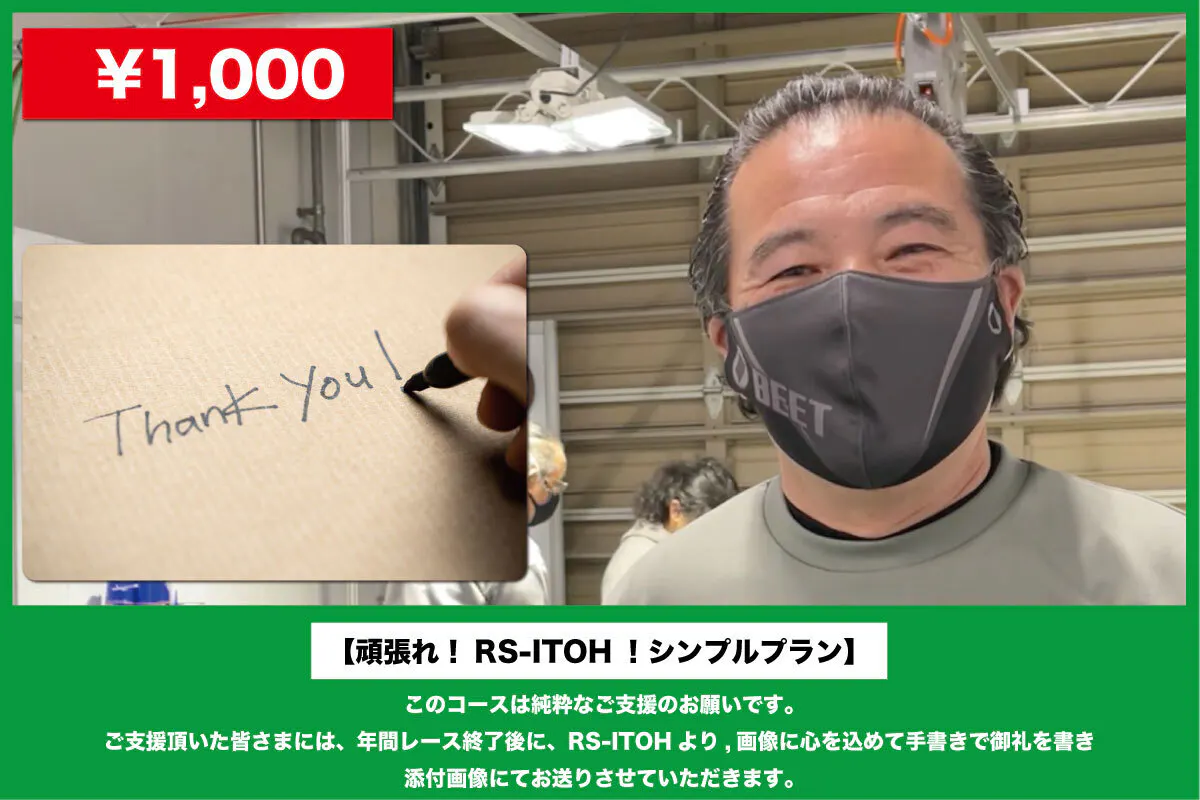 ¥1,000
Thank You!
BEET
【頑張れ！RS-ITOH！シンプルプラン】
このコースは純粋なご支援のお願いです。
ご支援頂いた皆さまには、年間レース終了後に、RS-ITOHより,画像に心を込めて手書きで御礼を書き
添付画像にてお送りさせていただきます。